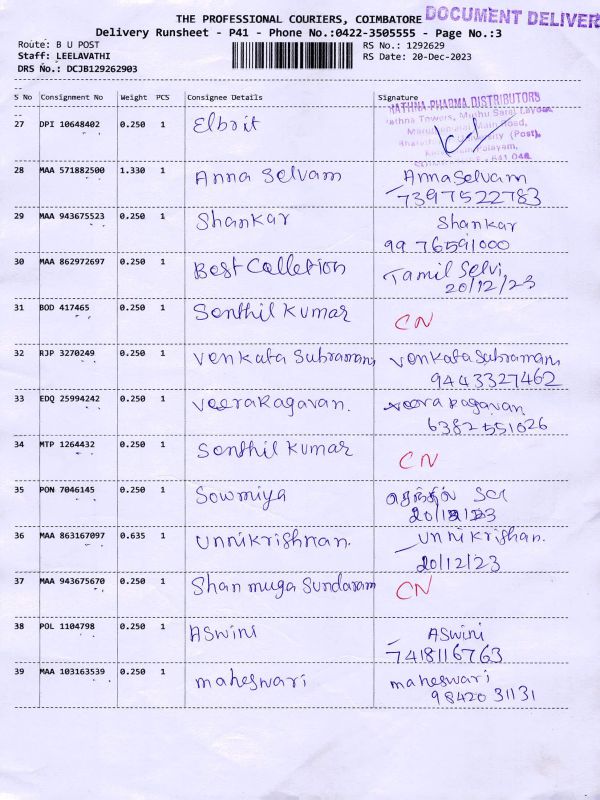 THE PROFESSIONAL COURIERS, COIMBATORE
DOCUMENT DELIVER
Delivery Runsheet - P41 - Phone No.:0422-3505555 - Page No.:3
Route: B U POST
RS No.: 1292629
Staff: LEELAVATHI
RS Date: 20-Dec-2023
DRS No.: DCJB129262903
S No Consignment No Weight PCS Consignee Details Signature
27 DPI 10648402 0.250 1 Elbrit
RATHNA PHARMA DISTRIBUTORS
28 MAA 571882500 1.330 1 Anna Selvam Anna Selvam
7397522783
29 MAA 943675523 0.250 1 Shankar Shankar
9976591000
30 MAA 862972697 0.250 1 Best Colletion Tamil Selvi
20/12/23
31 BOD 417465 0.250 1 Senthil Kumar CN
32 RJP 3270249 0.250 1 Venkata Subramani Venkata Subramani
9443327462
33 EDQ 25994242 0.250 1 Veeraragavan. Veera Ragavan
6382551026
34 MTP 1264432 0.250 1 Senthil Kumar CN
35 PON 7046145 0.250 1 Sowmiya
20/12/23
36 MAA 863167097 0.635 1 Unnikrishnan. Unnikrishan.
20/12/23
37 MAA 943675670 0.250 1 Shan muga Sundaram CN
38 POL 1104798 0.250 1 Aswini Aswini
7418116763
39 MAA 103163539 0.250 1 maheswari maheswari
98420 31131